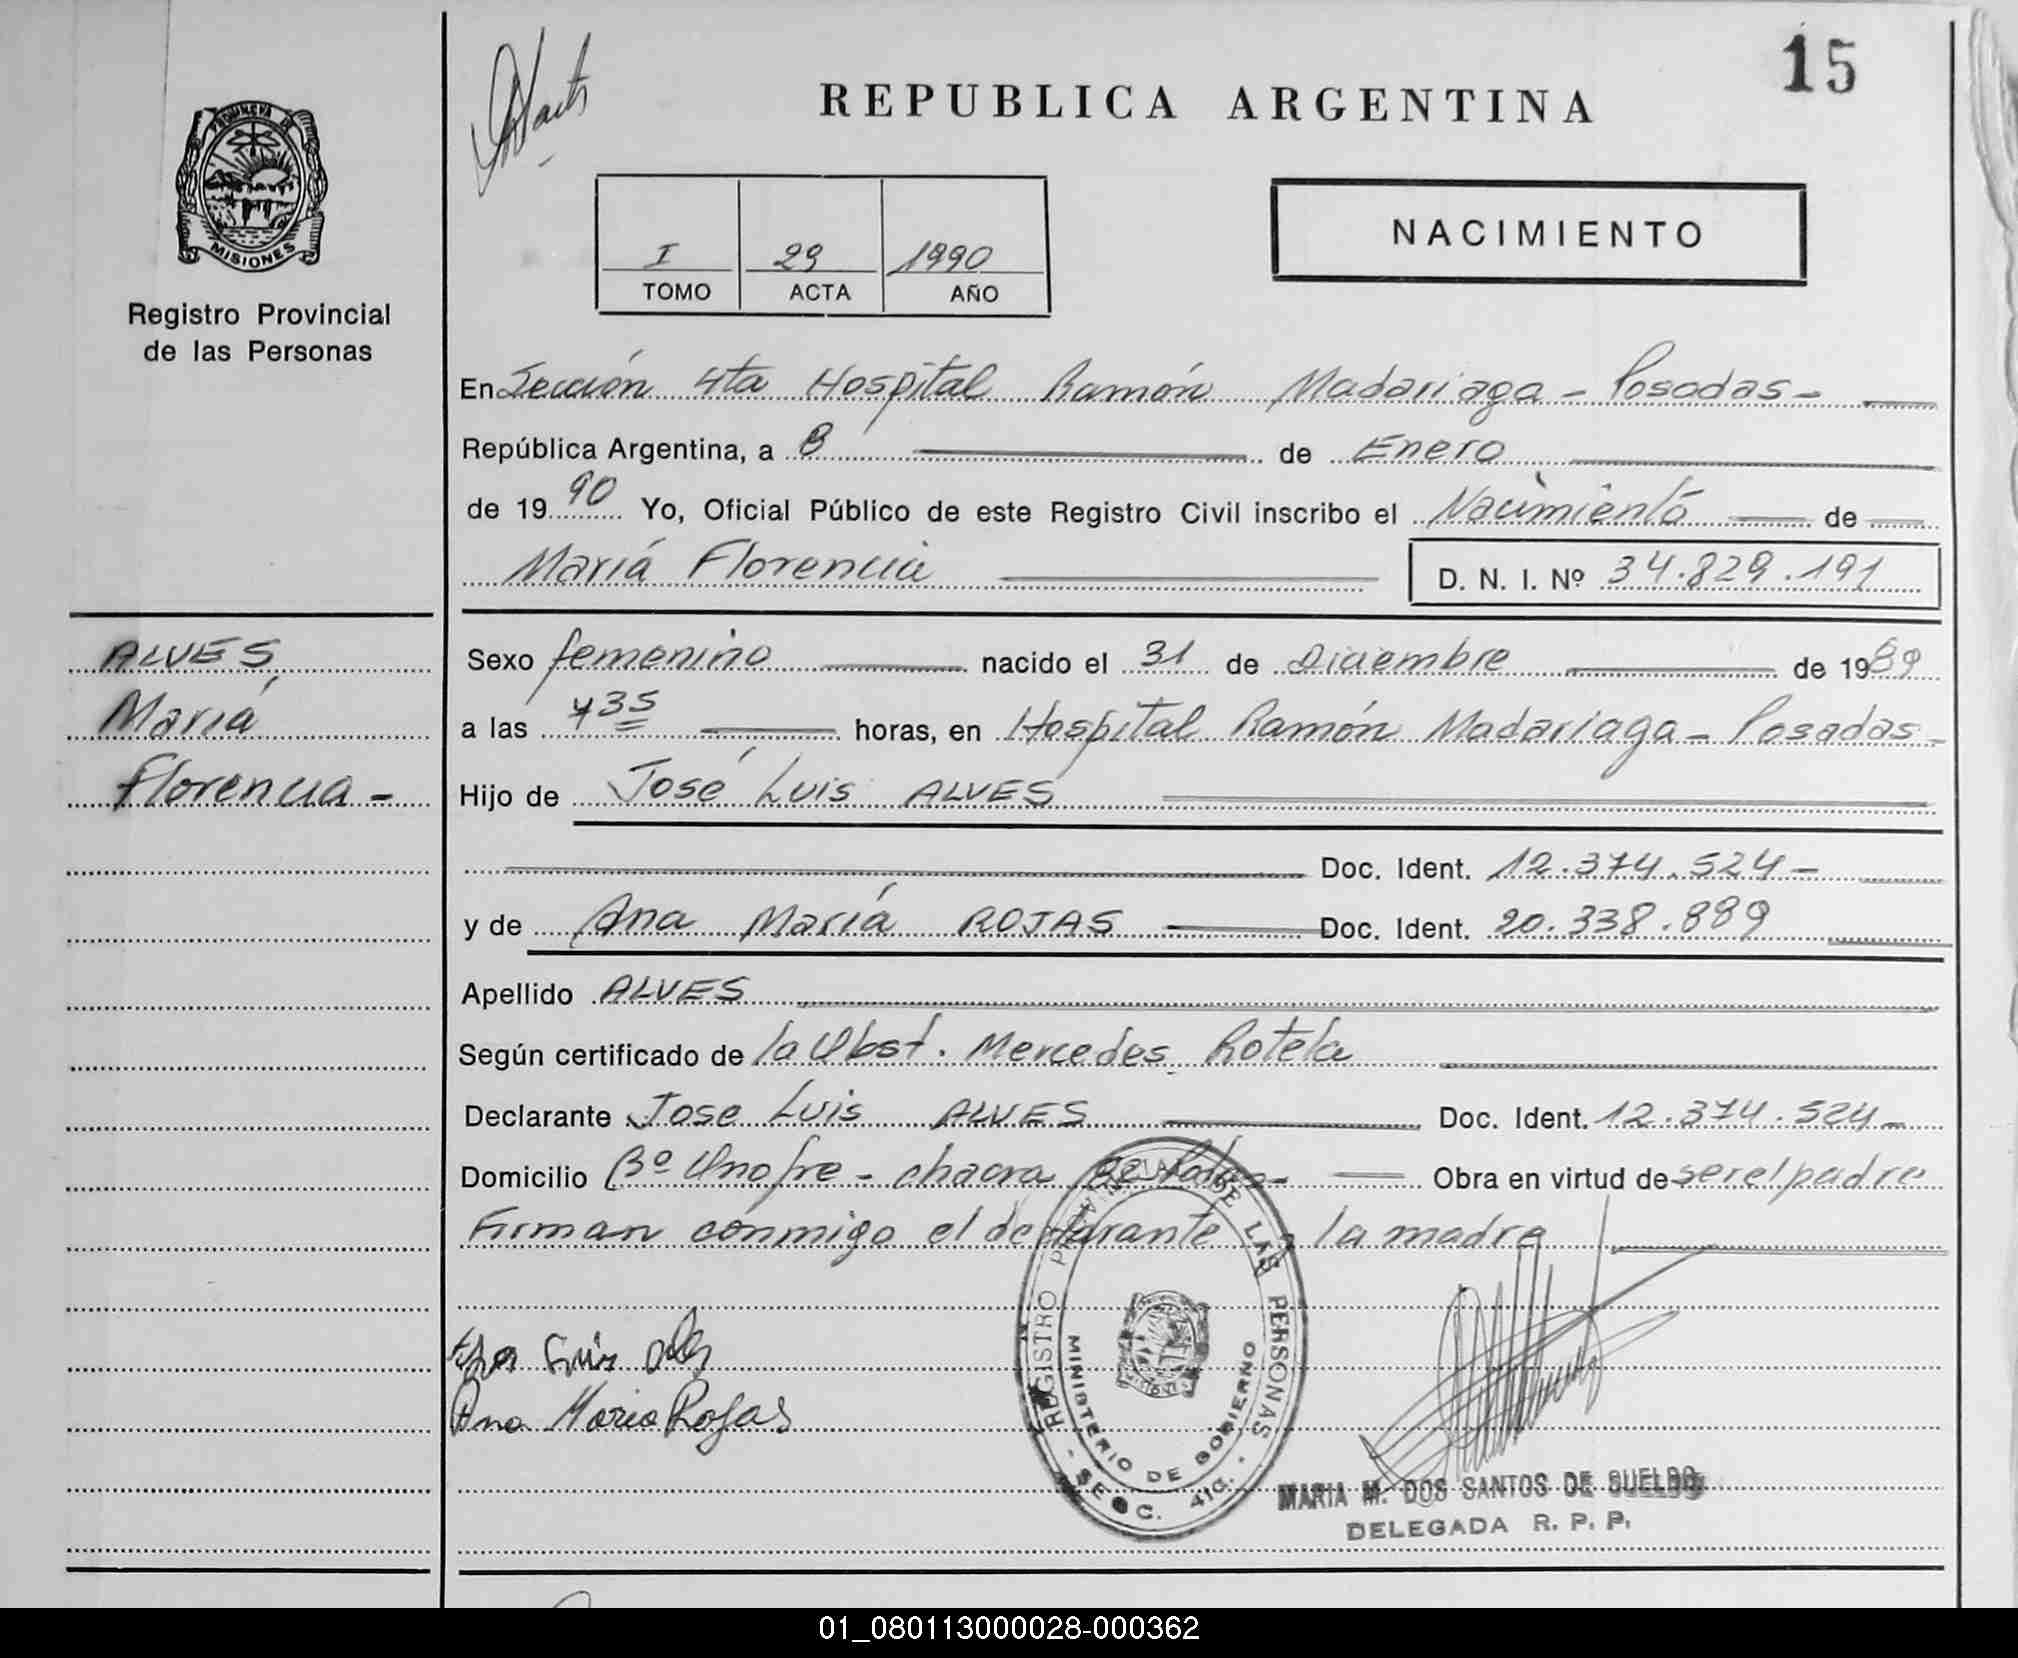 15
REPUBLICA ARGENTINA
PROVINCIA DE
MISIONES
Registro Provincial
de las Personas
NACIMIENTO
I 29 1990
TOMO ACTA AÑO
En Sección 4ta Hospital Ramón Madariaga - Posadas -
República Argentina, a 8 de Enero
de 1990 Yo, Oficial Público de este Registro Civil inscribo el Nacimiento de
María Florencia D. N. I. Nº 34.829.191
ALVES
María
Florencia -
Sexo femenino nacido el 31 de Diciembre de 1989
a las 7 35 horas, en Hospital Ramón Madariaga - Posadas -
Hijo de José Luis ALVES
Doc. Ident. 12.374.524 -
y de Ana María ROJAS Doc. Ident. 20.338.889
Apellido ALVES
Según certificado de la Obst. Mercedes Rotela
Declarante Jose Luis ALVES Doc. Ident. 12.374.524 -
Domicilio Bº Onofre - chacra Obra en virtud de ser el padre
Firman conmigo el declarante y la madre
Luis
Ana Maria Rojas
REGISTRO PROVINCIAL DE LAS PERSONAS
MINISTERIO DE GOBIERNO
- SECC. 4ta. -
MARIA M. DOS SANTOS DE SUELDO
DELEGADA R. P. P.
01_080113000028-000362